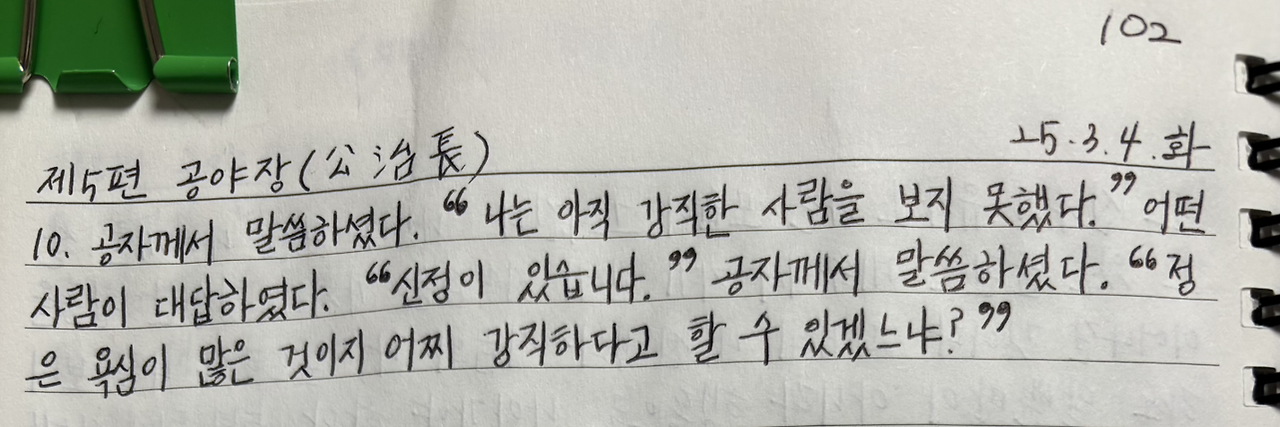 102
제5편 공야장(公冶長) 25.3.4.화
10. 공자께서 말씀하셨다. “나는 아직 강직한 사람을 보지 못했다.” 어떤
사람이 대답하였다. “신정이 있습니다.” 공자께서 말씀하셨다. “정
은 욕심이 많은 것이지 어찌 강직하다고 할 수 있겠느냐?”